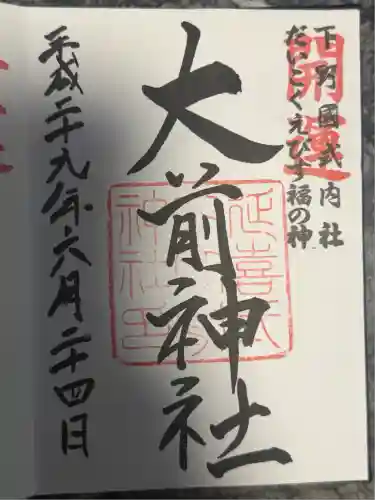 開運
下野國式内社
だいこくえびす福の神
大前神社
延喜式
神社
平成二十九年六月二十四日